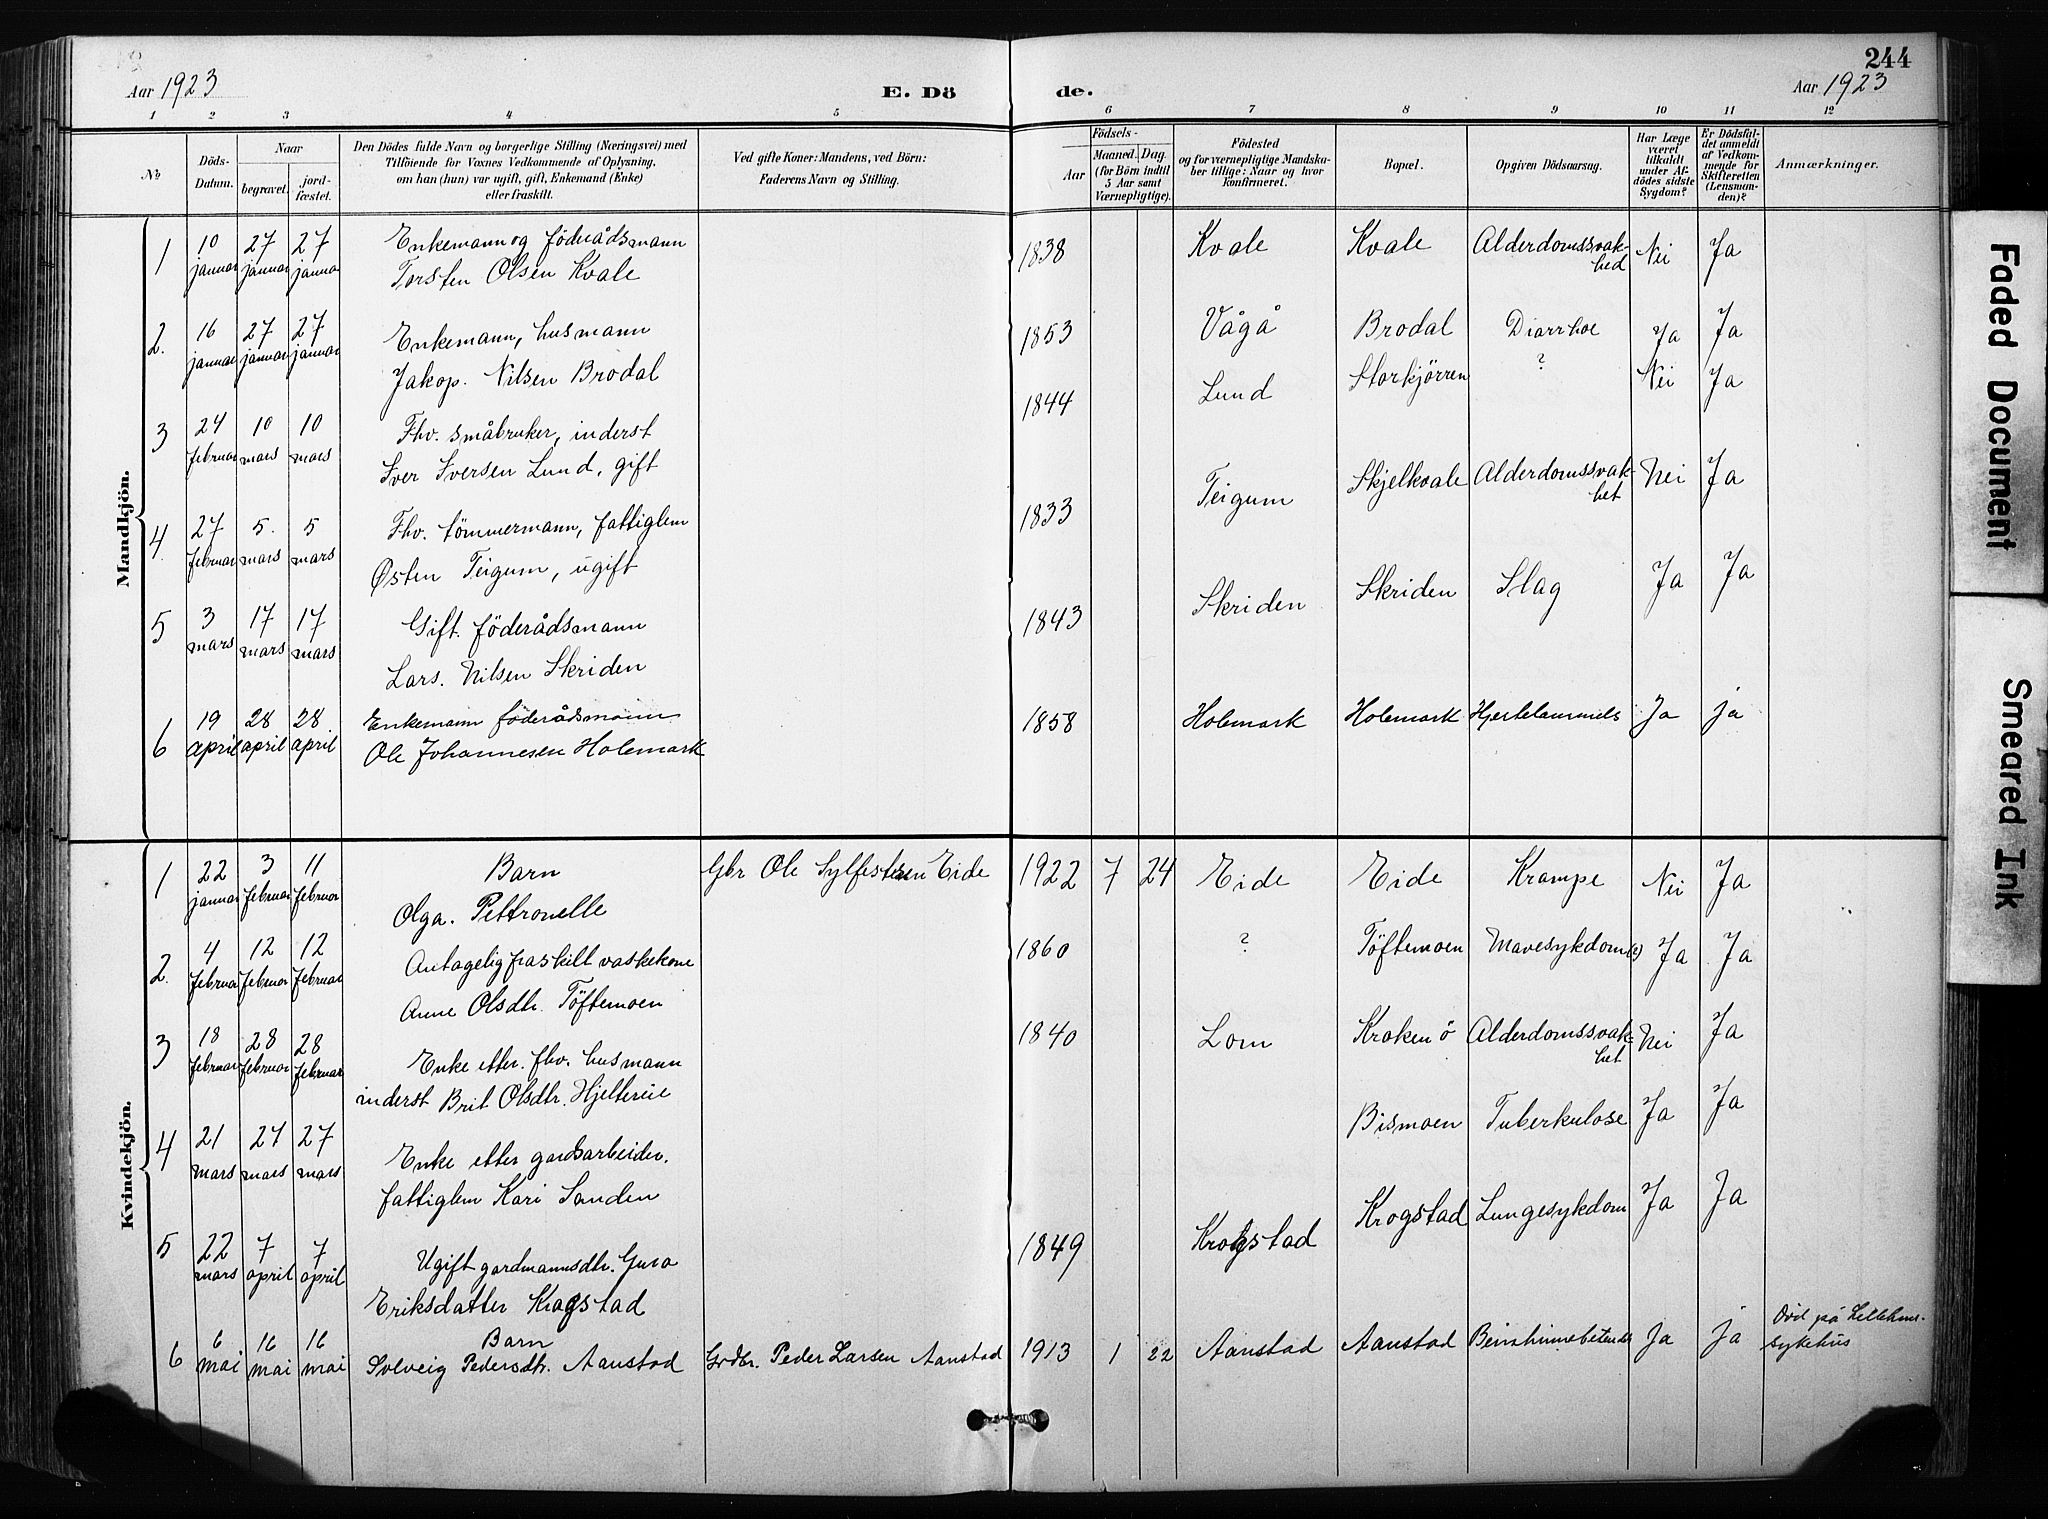 244
Aar 1923
E. Dö de.
Aar 1923
1 2 3 4 5 6 7 8 9 10 11 12
No
Döds-Datum.
Naar
begravet.
jordfæstet.
Den Dödes fulde Navn og borgerlige Stilling (Næringsvei) med
Tilföiende for Voxnes Vedkommende af Oplysning,
om han (hun) var ugift, gift, Enkemand (Enke)
eller fraskilt.
Ved gifte Koner: Mandens, ved Börn:
Faderens Navn og Stilling.
Födsels-
Aar
Maaned. Dag.
(for Börn indtil
5 Aar samt
Værnepligtige).
Födested
og for værnepligtige Mandska-
ber tillige: Naar og hvor
konfirmeret.
Bopæl.
Opgiven Dödsaarsag.
Har Læge
været
tilkaldt
under Af-
dödes sidste
Sygdom?
Er Dödsfal-
det anmeldt
af Vedkom-
mende for
Skifteretten
(Lensman-
den)?
Anmærkninger.
Mandkjön.
1 10 januar 27 januar 27 januar Enkemann og föderådsmann 1838 Kvale Kvale Alderdomssvak-hed Nei Ja
Torsten Olsen Kvale
2. 16 januar 27 januar 27 januar Enkemann, husmann 1853 Vågå Brodal Diarrhoe Ja Ja
Jakop. Nilsen Brodal
3 24 februar 10 mars 10 mars Fhv. småbruker, inderst 1844 Lund Storkjörren ? Nei Ja
Iver Iversen Lund, gift
4 27 februar 5. mars 5 mars Fhv. tömmermann, fattiglem 1833 Teigum Skjelkvale Alderdomssvak-het Nei Ja
Østen Teigum, ugift
5 3 mars 17 mars 17 mars Gift. föderådsmann 1843 Skriden Skriden Slag Ja Ja
Lars. Nilsen Skriden
6 19 april 28 april 28 april Enkemann föderådsmann 1858 Holemark Holemark Ja ja
Ole Johannesen Holemark
Kvindekjön.
1 22 januar 3 februar 11 februar Barn Gbr Ole Sylfestersen Eide 1922 7 24 Eide Eide Krampe Nei Ja
Olga. Pettronelle
2. 4 februar 12 februar 12 februar Antagelig fraskilt vaskekone 1860 ? Töftemoen Mavesykdom(?) Ja Ja
Anne Olsdtr. Töftemoen
3 18 februar 28 februar 28 februar Enke etter. fhv. husmann 1840 Lom Kroken ö Alderdomssvak-het Nei Ja
inderst Brit Olsdtr. Hjeltereie
4 21 mars 27 mars 27 mars Enke etter gardsarbeider. Bismoen Tuberkulose Ja Ja
fattiglem Kari Sanden
5 22 mars 7 april 7 april Ugift gardmannsdtr. Guro 1849 Krogstad Krogstad Lungesykdom Ja Ja
Eriksdatter Krogstad
6 6 mai 16 mai 16 mai Barn Grdbr. Peder Larsen Aanstad 1913 1 22 Aanstad Aanstad Ja ja Död på Lilleham. sykehus
Solveig Pedersdtr. Aanstad
Faded Document
Smeared Ink